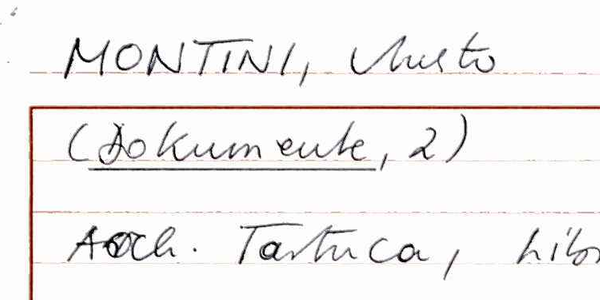 MONTINI, Justo
(Dokumente, 2)
Arch. Tartuca, Libr